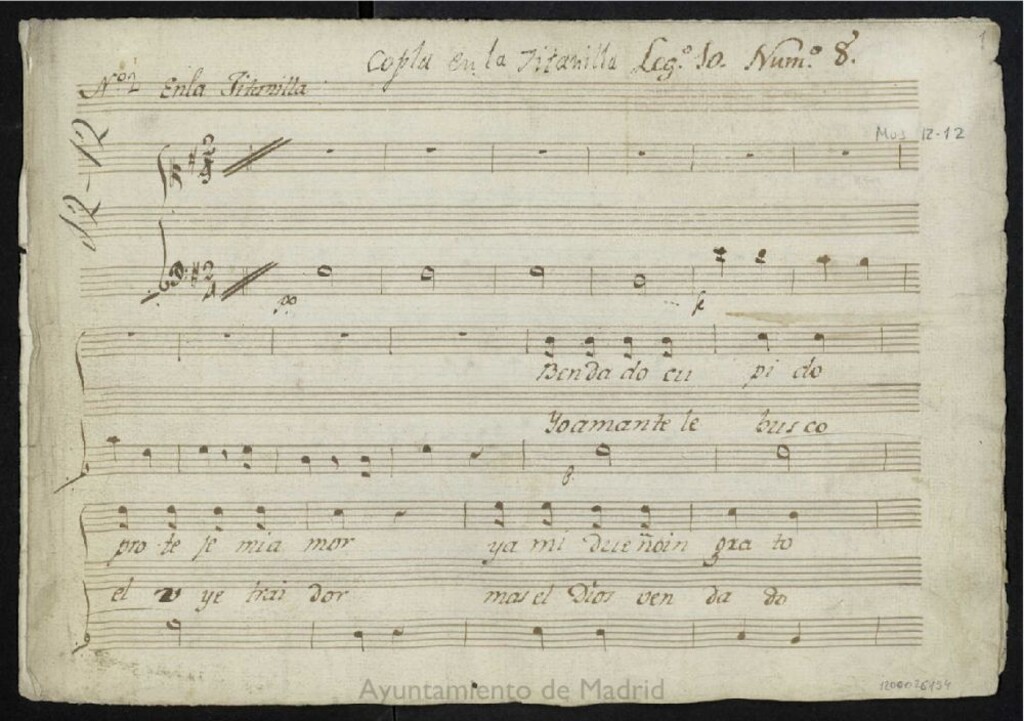 Copla en la Jitanilla Leg.º 10. Num.º 8.
1
Nº 2 En la Jitanilla
Mus 12-12
12-12
po
fe
Benda do cu pi do
Yo amante le busco
p.
pro te je mi a mor ya mi dueño in gra to
el ye trai dor mas el Dios ven da do
Ayuntamiento de Madrid
1200026194